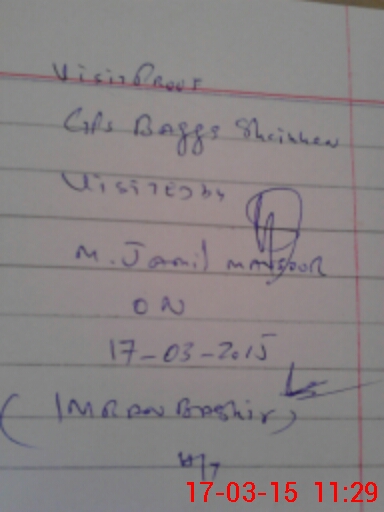 Visit Proof
GPS Baggs Sheikhan
Visited by
M. Jamil MANSOOR
ON
17-03-2015
(IMRAN BASHIR)
H/T
17-03-15 11:29